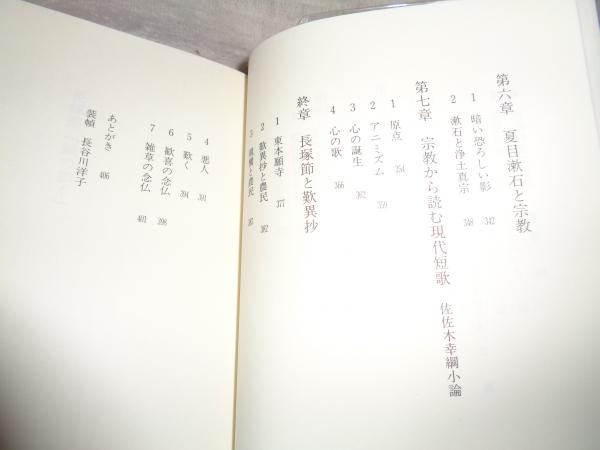 第六章 夏目漱石と宗教
1 暗い恐ろしい影 342
2 漱石と浄土真宗 348
第七章 宗教から読む現代短歌 佐佐木幸綱小論
1 原点 354
2 アニミズム 359
3 心の誕生 362
4 心の歌 366
終章 長塚節と歎異抄
1 東本願寺 377
2 歎異抄と農民 382
3 と農民
4 悪人 391
5 歎く 394
6 歓喜の念仏 398
7 雑草の念仏 401
あとがき 406
装幀 長谷川洋子